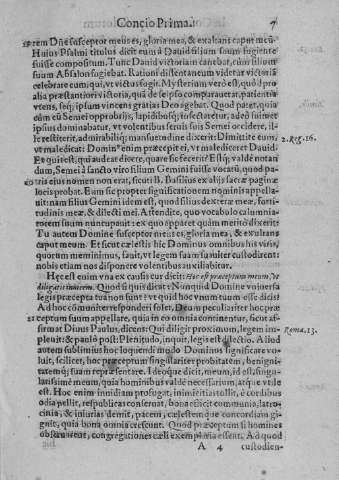 Concio Prima. 7
rem Dñe susceptor meus es, gloria mea, & exaltans caput meū.
Huius Psalmi titulus dicit eum à Dauid filium suum fugiente
fuisse compositum. Tunc Dauid victoriam canebat, cùm filium
suum Absalon fugiebat. Rationi dissentaneum videtur victoriã
celebrare eum, qui, vt victus fugit. Mysterium verò est, quòd præ
alia præstantiori victoria, qui de seipso comparauerat, patientia
vtens, seq; ipsum vincens gratias Deo agebat. Quod patet, quia
cùm eū Semei opprobrijs, lapidibusq; insectaretur, adeò sui met
ipsius dominabatur, vt volentibus seruis suis Semei occidere, il-
le restiterit, admirabiliq; mansuetudine dixerit: Dimittite eum,
vt maledicat: Dominus enim præcepit ei, vt malediceret Dauid.
2. Reg. 16.
Et quis est, qui audeat dicere, quare sic fecerit? Estq; valdè notan-
dum, Semei à sancto viro filium Gemini fuisse vocatū, quod pa-
tris eius nomen non erat, sicut B. Basilius ex alijs sacræ paginæ
locis probat. Eum sic propter significationem nominis appella-
uit: nam filius Gemini idem est, quod filius dexteræ meæ, forti-
tudinis meæ, & dilecti mei. Attendite, quo vocabulo calumnia-
torem suum nuncuparit: ex quo apparet quàm meritò dixerit:
Tu autem Domine susceptor meus es, gloria mea, & exultans
caput meum. Et sicut cælestis hic Dominus omnibus his visis,
quorum meminimus, fauit, vt legem suam suauiter custodirent:
nobis etiam nos disponere volentibus auxiliabitur.
Hęc est enim vna ex causis cur dicit: Hoc est præceptum meum, vt
diligatis inuicem. Quod si quis dicat: Nunquid Domine vniuersa
legis præcepta tua non sunt? vt quid hoc vnum tuum esse dicis?
Ad hoc cōmuniter responderi solet, Deum peculiariter hoc præ-
ceptum suum appellare, quia in eo omnia continentur, sicut af-
firmat Diuus Paulus, dicens: Qui diligit proximum, legem im-
Roma. 13.
pleuit: & paulò post: Plenitudo, inquit, legis est dilectio. Aliud
autem sublimius hoc loquendi modo Dominus significare vo-
luit, scilicet, hoc præceptum singulariter probitatem, benigni-
tatemq; suam repræsentare. Ideoque dicit, meum, id est, singu-
larissimè meum, quia hominibus valdè necessarium, atque vtile
est. Hoc enim inuidiam profugat, inimicitias tollit, è cordibus
odia pellit, respublicas conseruat, bona efficit communia, latro-
cinia, & iniurias demit, pacem, cælestemque concordiam gi-
gnit, quia bona omnia crescunt. Quod præceptum si homines
obseruarent, congregationes cæli exempla essent. A d quod
A 4 custodien-